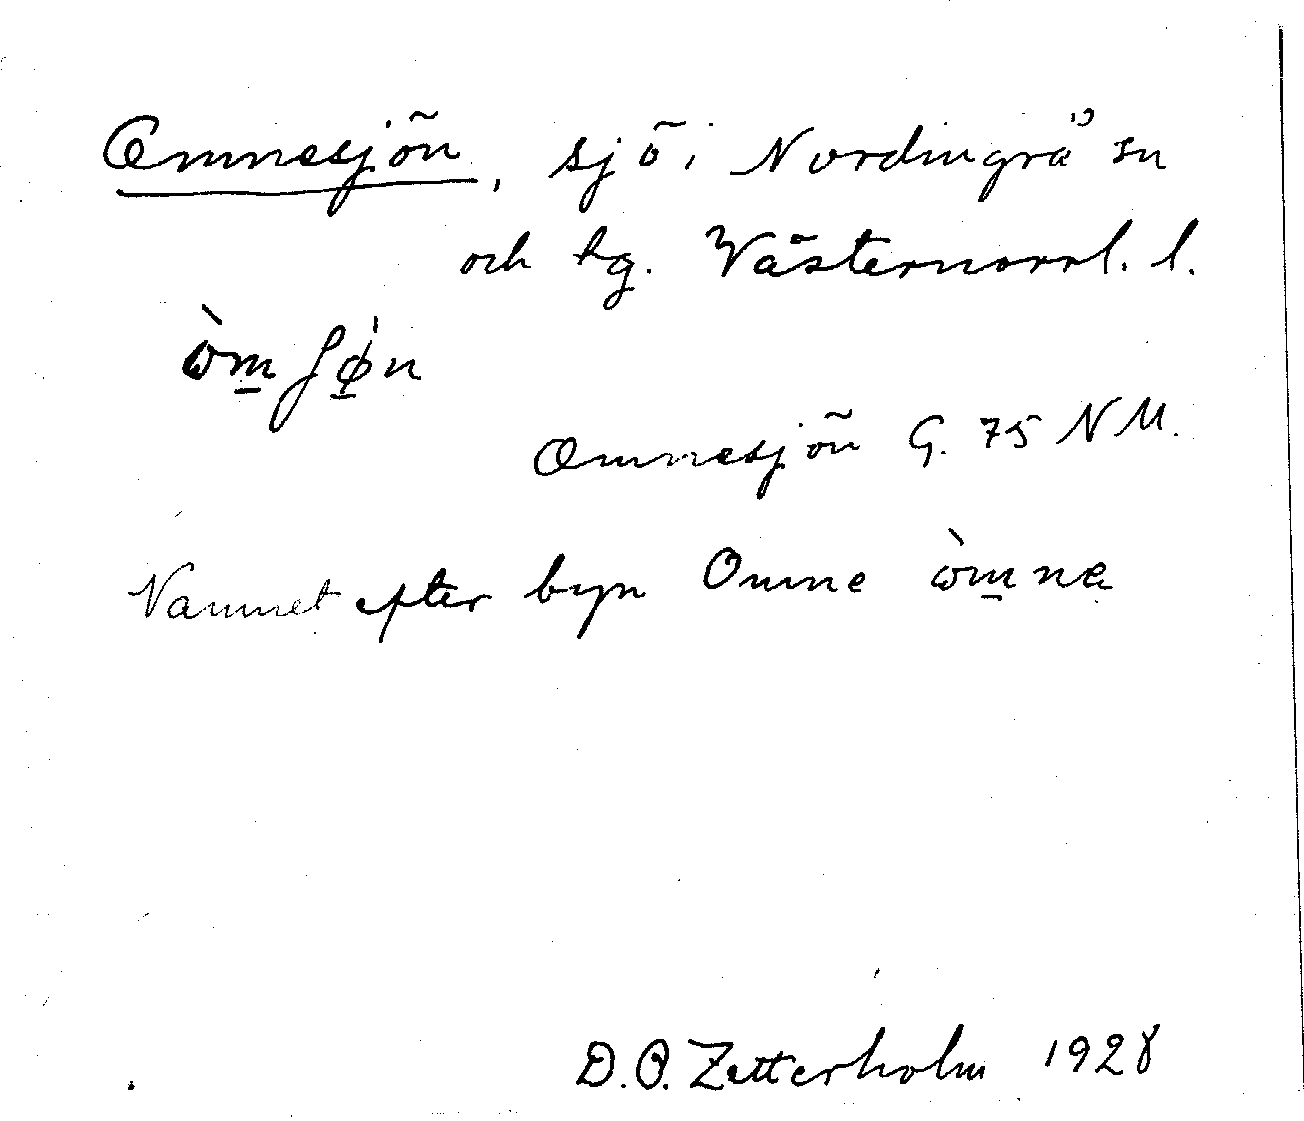 Omnesjön, sjö i Nordingrå sn
och hg. Västernorrl. l.
ὼm̲ʃǿ̲n
Omnesjön G. 75 NM.
Namnet efter byn Omne ὼm̲ne
D. O. Zetterholm 1928